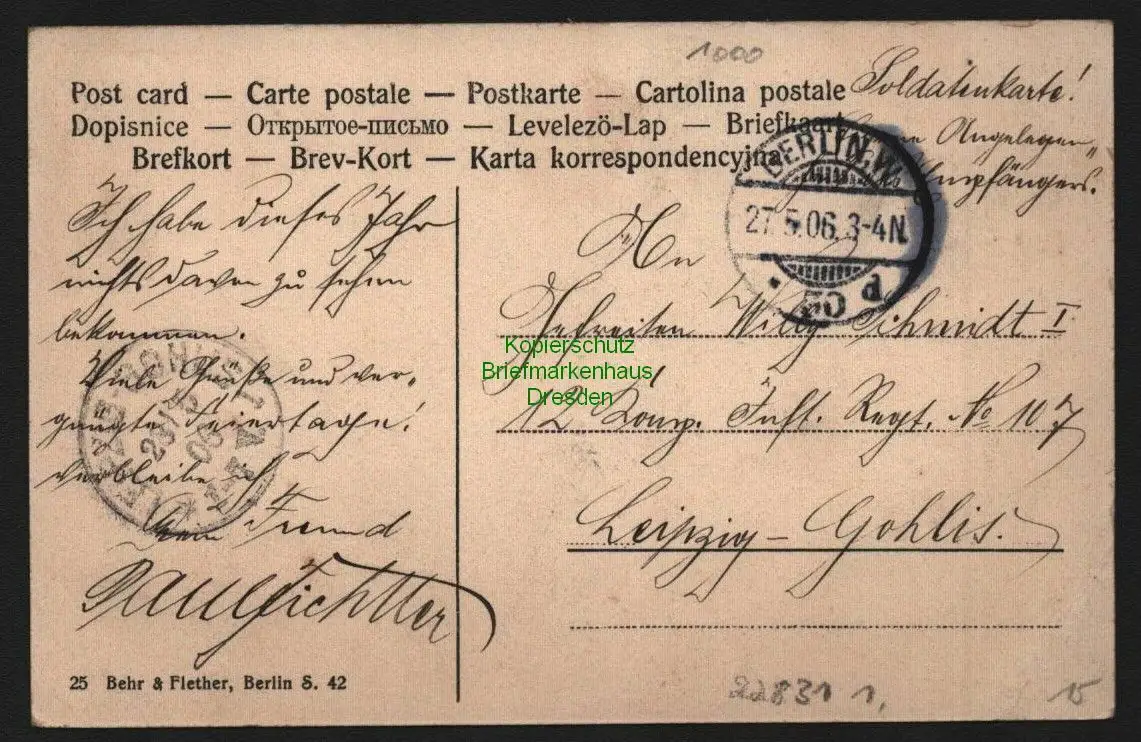 1000
Post card — Carte postale — Postkarte — Cartolina postale
Dopisnice — Открытое-письмо — Levelező-Lap — Briefkaart
Brefkort — Brev-Kort — Karta korrespondencyjna
Soldatenkarte!
Angelegen„
Empfängers.
BERLIN.W.
27.5.06.3-4N.
Ich habe dieses Jahr
nichts davon zu sehen
bekommen.
Viele Grüße und ver„
gnügte Feiertage!
verbleibe ich
Dein Freund
Paul
An
Gefreiten Willy Schmidt I
12 Komp. Inft. Regt. No 107
Leipzig – Gohlis.
Kopierschutz
Briefmarkenhaus
Dresden
25 Behr & Flether, Berlin S. 42
22831 1.
15